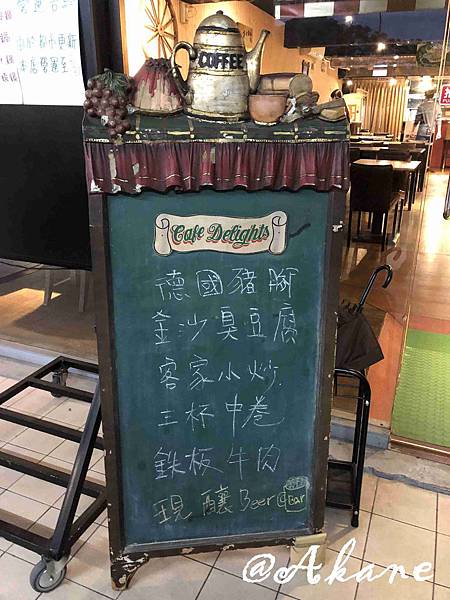 COFFEE
Cafe Delights
德國豬腳
金沙臭豆腐
客家小炒
三杯中卷
鉄板牛肉
現釀Beer
Bar
@Akane